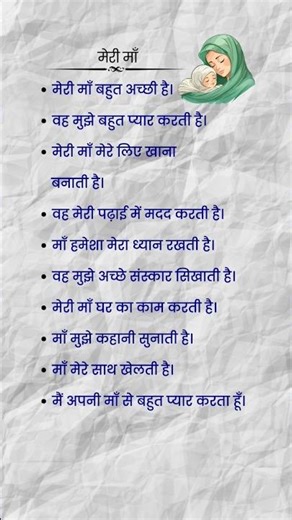 मेरी माँ
• मेरी माँ बहुत अच्छी है।
• वह मुझे बहुत प्यार करती है।
• मेरी माँ मेरे लिए खाना
बनाती है।
• वह मेरी पढ़ाई में मदद करती है।
• माँ हमेशा मेरा ध्यान रखती है।
• वह मुझे अच्छे संस्कार सिखाती है।
• मेरी माँ घर का काम करती है।
• माँ मुझे कहानी सुनाती है।
• माँ मेरे साथ खेलती है।
• मैं अपनी माँ से बहुत प्यार करता हूँ।